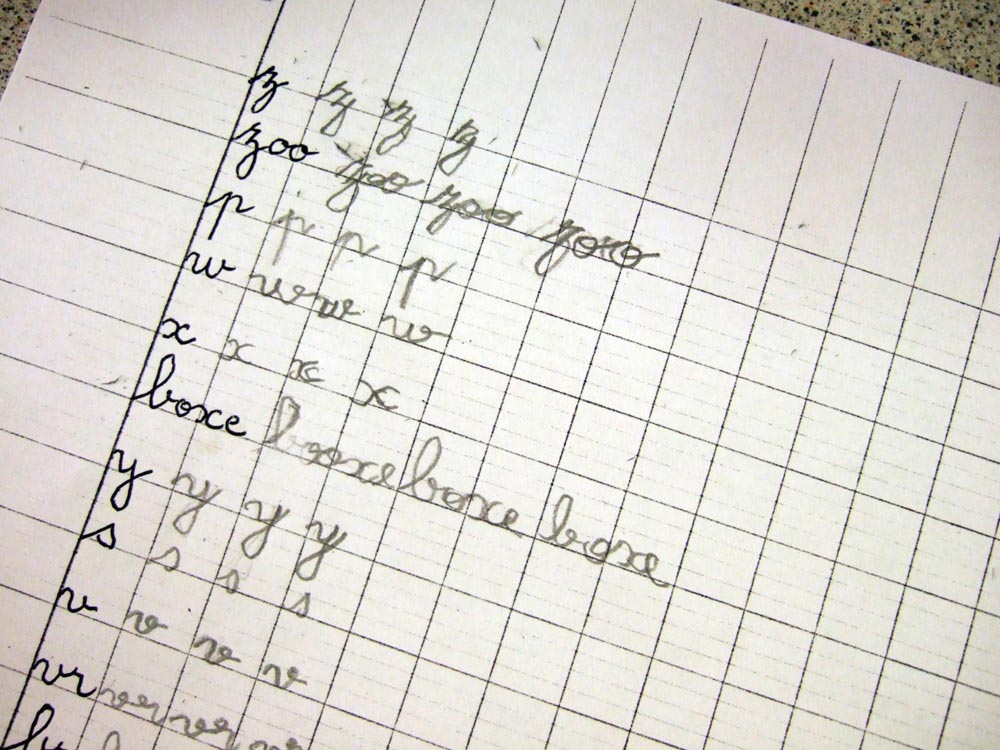 z z z z
zoo zoo zoo zoo
p p p p
w w w w
x x x x
boxe boxe boxe boxe
y y y y
s s s s
v v v v
vr vr vr vr